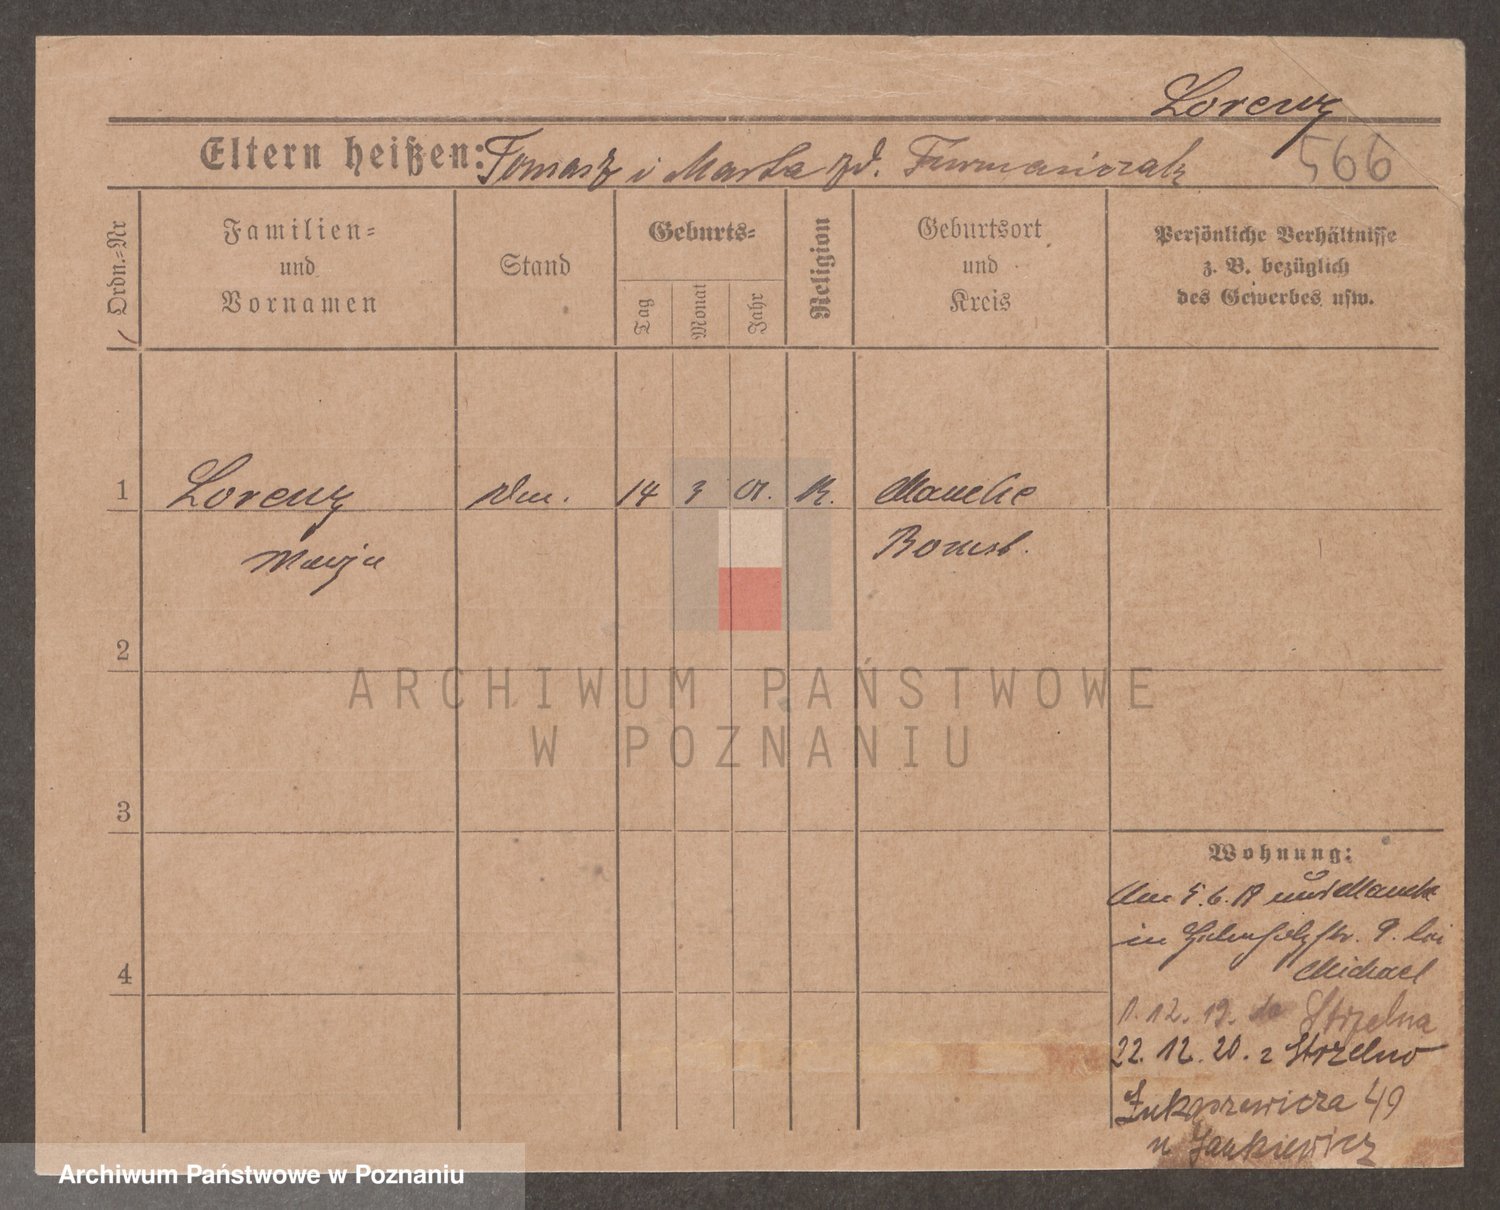 Lorenz
Eltern heißen: Tomasz i Marta zd. Furmańczak
566
Ordn.-Nr
Familien-
und
Vornamen
Stand
Geburts-
Tag
Monat
Jahr
Religion
Geburtsort
und
Kreis
Persönliche Verhältnisse
z. B. bezüglich
des Gewerbes usw.
1
Lorenz
14 3 01. K.
Mauche
Marja
Bomst.
2
ARCHIWUM PAŃSTWOWE
W POZNANIU
3
Wohnung:
Am 5.6.19 aus Mauche
in str. 9. bei
4
Michael
12. 19. do Strzelna
22. 12. 20. z Strzelno
Łukaszewicza 49
u Jankiewicz
Archiwum Państwowe w Poznaniu